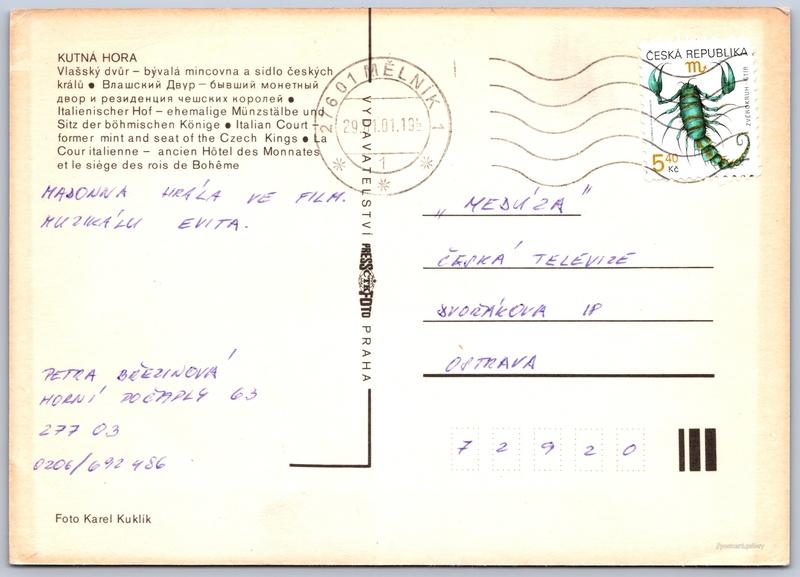 KUTNÁ HORA
Vlašský dvůr – bývalá mincovna a sídlo českých
králů ● Влашский Двур – бывший монетный
двор и резиденция чешских королей ●
Italienischer Hof – ehemalige Münzstälbe und
Sitz der böhmischen Könige ● Italian Court –
former mint and seat of the Czech Kings ● La
Cour italienne – ancien Hôtel des Monnates
et le siège des rois de Bohême
MADONNA HRÁLA VE FILM.
MUZIKÁLU EVITA.
PETRA BŘEZINOVÁ
HORNÍ POČAPLY 63
277 03
0206/692 486
Foto Karel Kuklík
VYDAVATELSTVÍ PRESSFOTO PRAHA
ČTK
276 01 MĚLNÍK 1
1
ČESKÁ REPUBLIKA
ZVĚROKRUH - ŠTÍR
5,40
Kč
„MEDÚZA"
ČESKÁ TELEVIZE
DVOŘÁKOVA 18
OSTRAVA
7 2 9 2 0